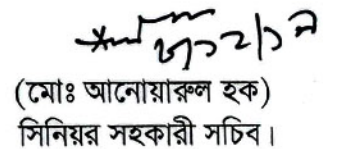 (মোঃ আনোয়ারুল হক)
সিনিয়র সহকারী সচিব।